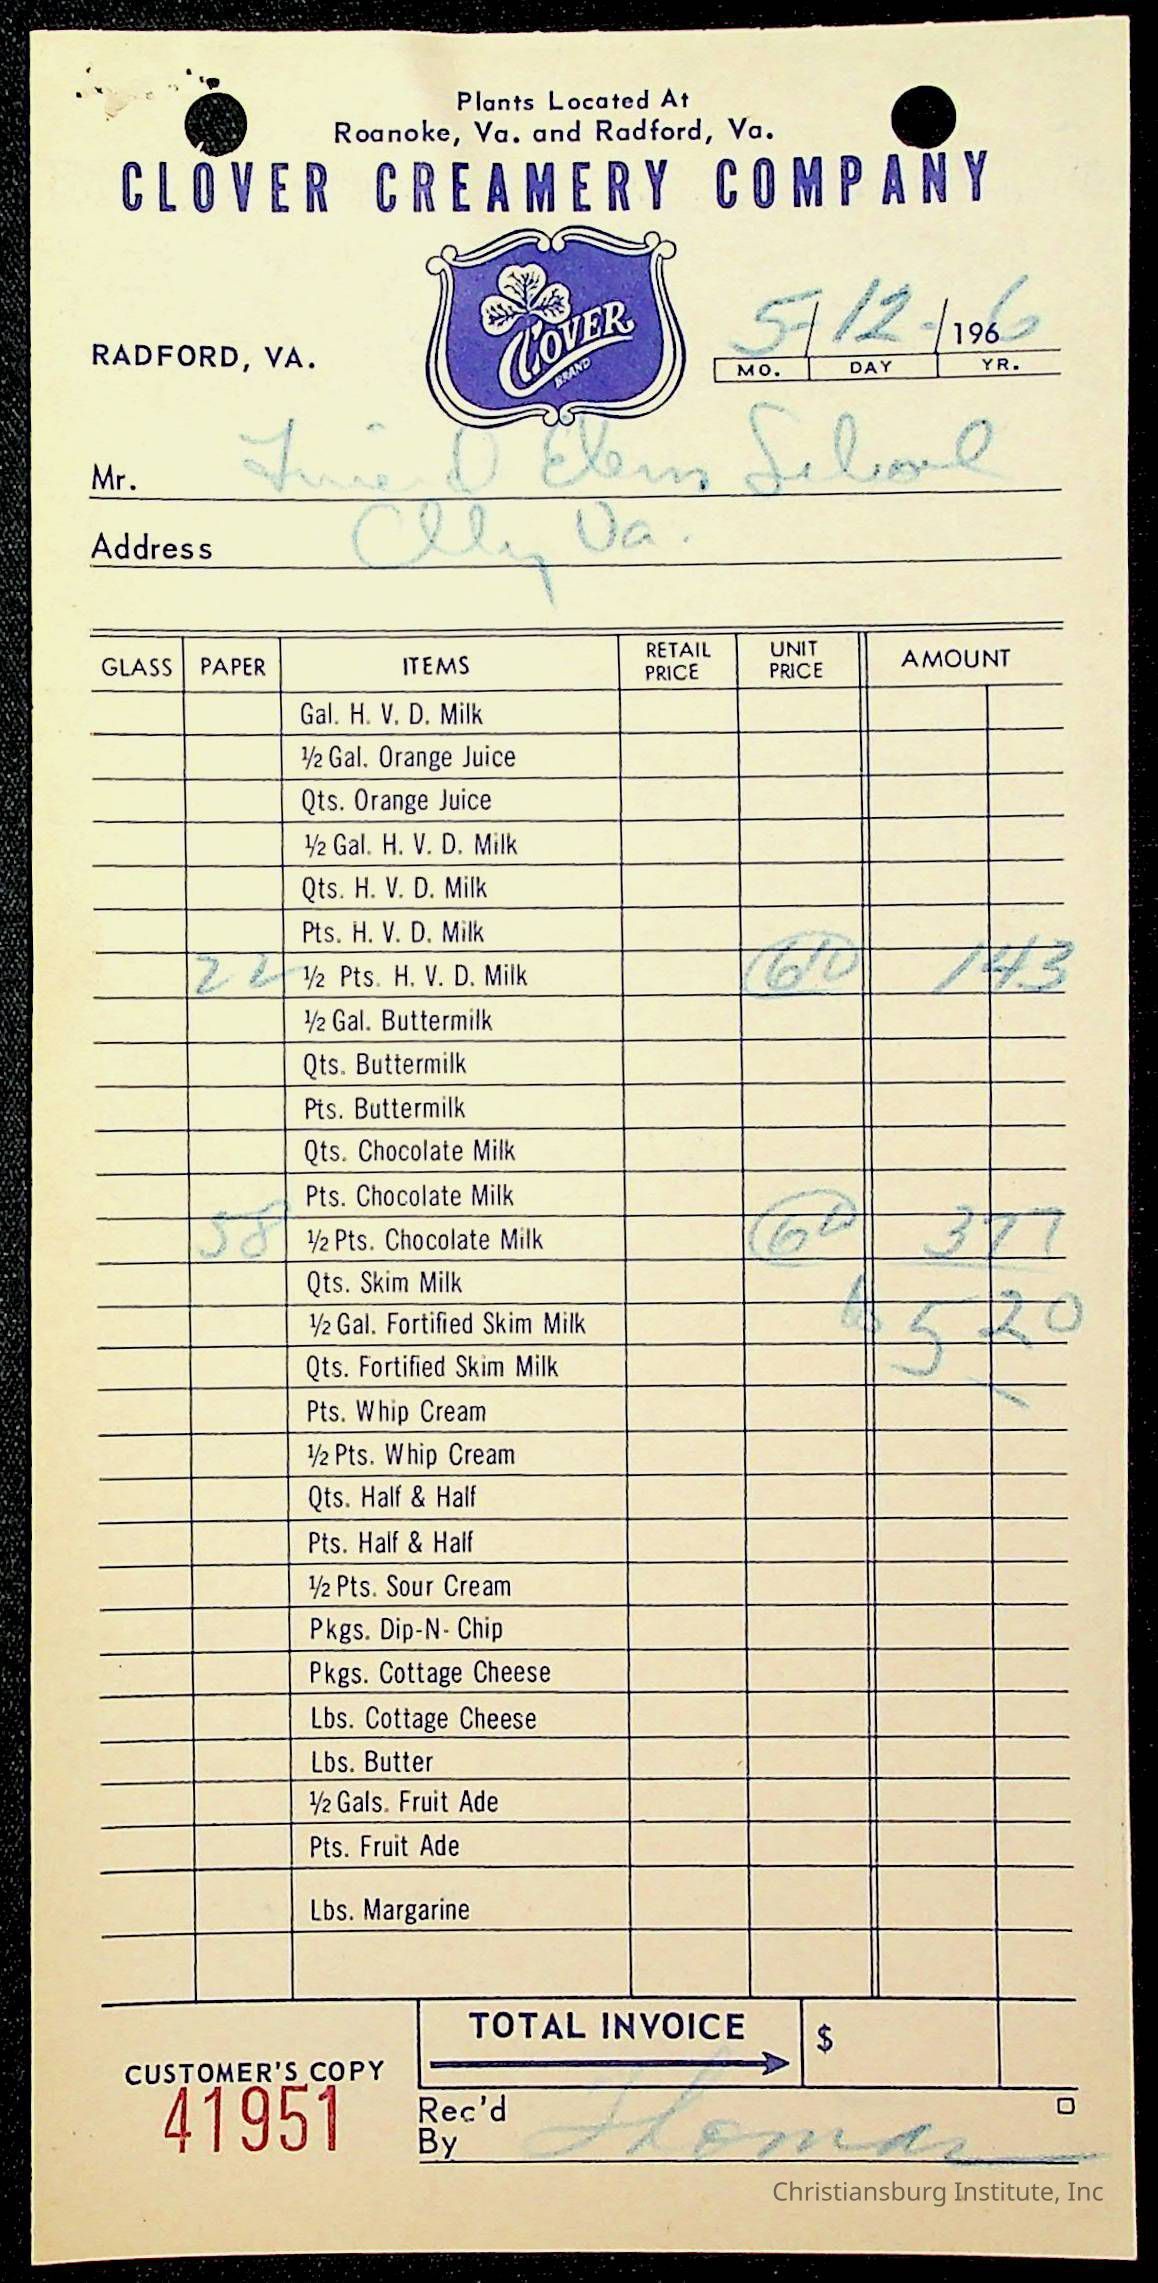 Plants Located At
Roanoke, Va. and Radford, Va.
CLOVER CREAMERY COMPANY
CLOVER
BRAND
RADFORD, VA.
5/12-/1966
MO. DAY YR.
Mr. Elem School
Address Va.
GLASS PAPER ITEMS RETAIL PRICE UNIT PRICE AMOUNT
Gal. H. V. D. Milk
½ Gal. Orange Juice
Qts. Orange Juice
½ Gal. H. V. D. Milk
Qts. H. V. D. Milk
Pts. H. V. D. Milk
22 ½ Pts. H. V. D. Milk 143
½ Gal. Buttermilk
Qts. Buttermilk
Pts. Buttermilk
Qts. Chocolate Milk
Pts. Chocolate Milk
58 ½ Pts. Chocolate Milk 377
Qts. Skim Milk
½ Gal. Fortified Skim Milk 520
Qts. Fortified Skim Milk
Pts. Whip Cream
½ Pts. Whip Cream
Qts. Half & Half
Pts. Half & Half
½ Pts. Sour Cream
Pkgs. Dip-N-Chip
Pkgs. Cottage Cheese
Lbs. Cottage Cheese
Lbs. Butter
½ Gals. Fruit Ade
Pts. Fruit Ade
Lbs. Margarine
TOTAL INVOICE $
CUSTOMER'S COPY
41951
Rec'd
By Thomas
Christiansburg Institute, Inc